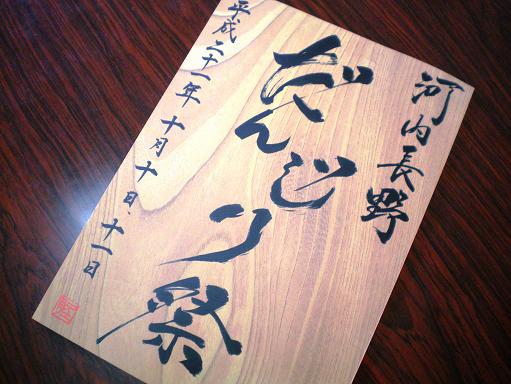 河内長野
だんじり祭
平成二十一年十月十日、十一日